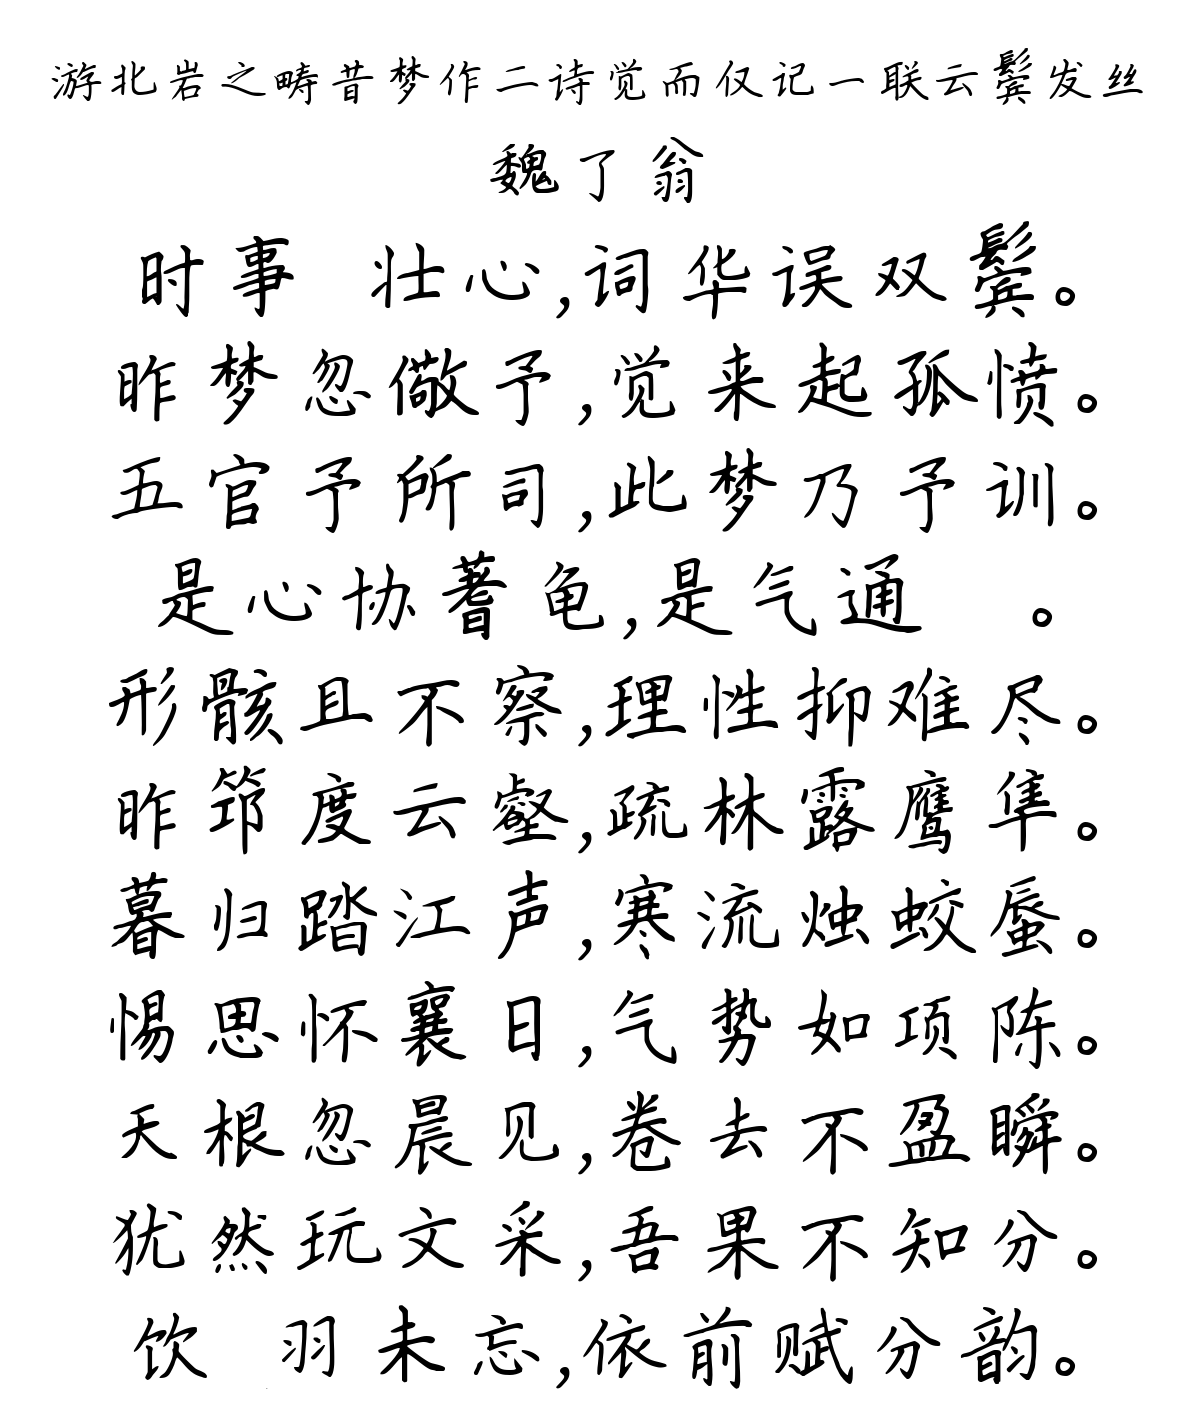 游北岩之畴昔梦作二诗觉而仅记一联云鬓发丝
魏了翁
时事 壮心,词华误双鬓。
昨梦忽儆予,觉来起孤愤。
五官予所司,此梦乃予训。
是心协蓍龟,是气通 。
形骸且不察,理性抑难尽。
昨筇度云壑,疏林露鹰隼。
暮归踏江声,寒流烛蛟蜃。
惕思怀襄日,气势如项陈。
天根忽晨见,卷去不盈瞬。
犹然玩文采,吾果不知分。
饮 羽未忘,依前赋分韵。